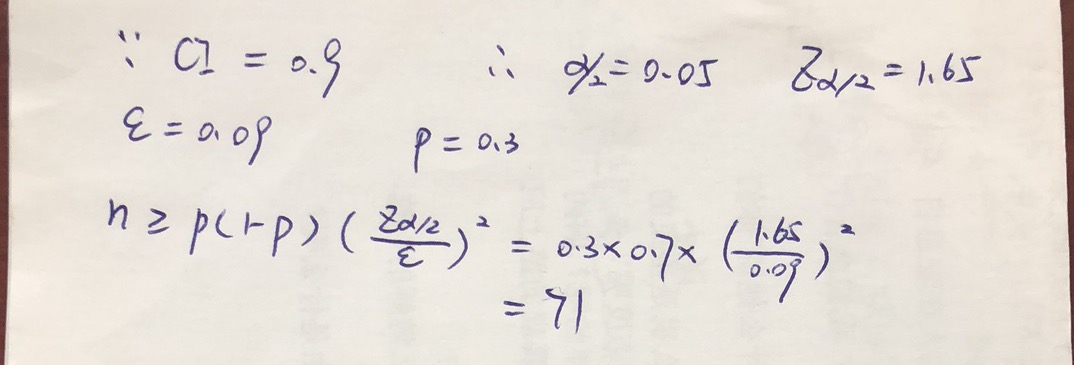 ∵ CI = 0.9 ∴ α/2 = 0.05 Zα/2 = 1.65
ε = 0.09 p = 0.3
n ≥ p(1-p) (Zα/2 / ε)² = 0.3 × 0.7 × (1.65 / 0.09)²
= 71